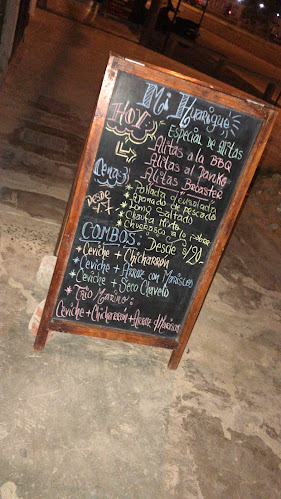 Mi Manrique
HOY: Especial de Alitas
Alitas a la BBQ
Alitas al Panko
Alitas Broaster
Cenas
Desde
* Pollada c/ensalada
* Apanado de pescado
* Lomo Saltado
* Chaufa Mixto
* Churrasco a lo pobre
COMBOS: Desde S/20
* Ceviche + Chicharrón
* Ceviche + Arroz con Mariscos
* Ceviche + Seco Chavelo
* Trio Marino:
Ceviche + Chicharron + Arroz d/Mariscos